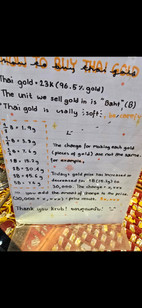 HOW TO BUY THAI GOLD
Thai gold = 23K (96.5% gold)
The unit we sell gold in is "Baht" (B)
*Thai gold is usally [soft].
B = 1.9g
B = 3.8g
B = 7.6g
1B = 15.2g
2B = 30.4g
3B = 45.6g
5B = 76g
The charge for making each gold
(pieces of gold) are not the same
for example,
Today's gold price has increased or
decreased for 1B (15.2g) to
30,000. The charge = x,xxx
you add the amount of charge to the price.
(30,000 + x,xxx) = price result.
Thank you krub! ขอบคุณครับ!